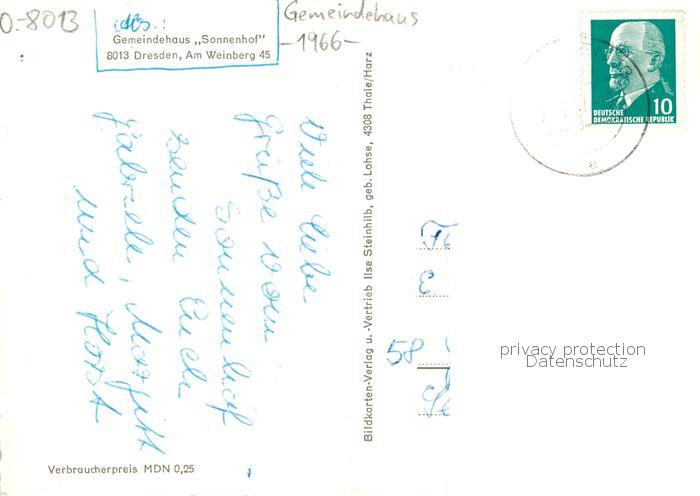 O.-8013
Abs.:
Gemeindehaus „Sonnenhof"
8013 Dresden, Am Weinberg 45
Gemeindehaus
-1966-
DEUTSCHE
DEMOKRATISCHE REPUBLIK
10
Viele liebe
Grüße vom
Sonnenhof
senden Euch
Gabriele, Margitt
und Horst
Bildkarten-Verlag u. -Vertrieb Ilse Steinhilb, geb. Lohse, 4308 Thale/Harz
E.
58
privacy protection
Datenschutz
Verbraucherpreis MDN 0,25